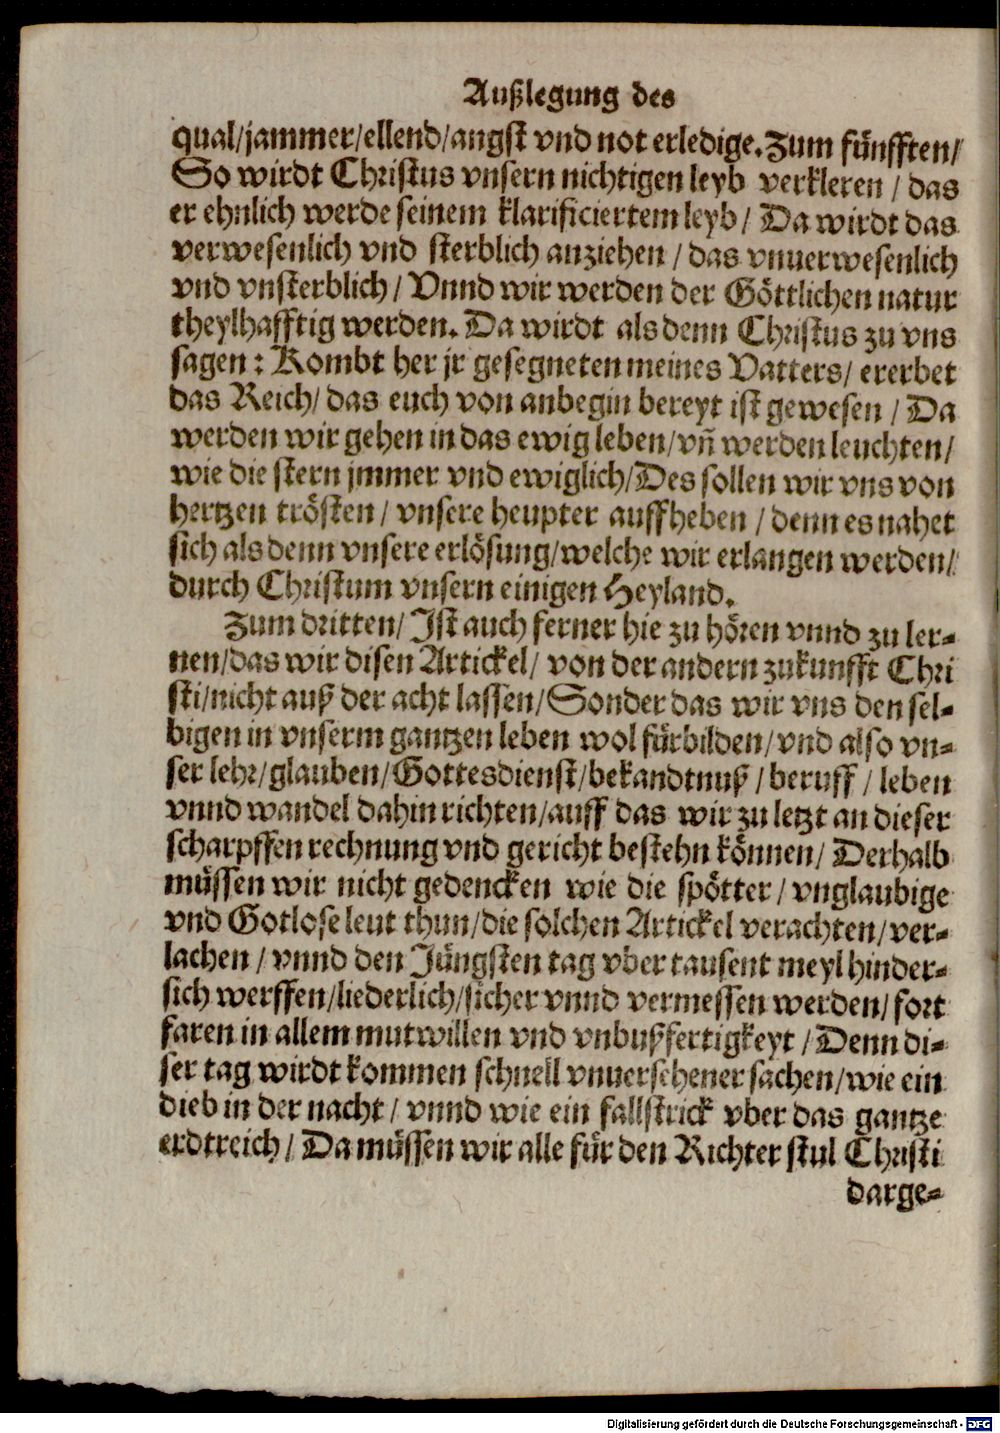 Außlegung des
qual/jammer/ellend/angst vnd not erledige. Zum fünfften/
So wirdt Christus vnsern nichtigen leyb verkleren / das
er ehnlich werde seinem klarificiertem leyb / Da wirdt das
verwesenlich vnd sterblich anziehen / das vnuerwesenlich
vnd vnsterblich / Vnnd wir werden der Göttlichen natur
theylhafftig werden. Da wirdt als denn Christus zu vns
sagen: Kombt her jr gesegneten meines Vatters / ererbet
das Reich / das euch von anbegin bereyt ist gewesen / Da
werden wir gehen in das ewig leben / vñ werden leuchten /
wie die stern jmmer vnd ewiglich / Des sollen wir vns von
hertzen trösten / vnsere heupter auffheben / denn es nahet
sich als denn vnsere erlösung / welche wir erlangen werden /
durch Christum vnsern einigen Heyland.
Zum dritten / Ist auch ferner hie zu hören vnnd zu ler-
nen / das wir disen Artickel / von der andern zukunfft Chri
sti / nicht auß der acht lassen / Sonder das wir vns den sel-
bigen in vnserm gantzen leben wol fürbilden / vnd also vn-
ser lehr / glauben / Gottesdienst / bekandtnuß / beruff / leben
vnnd wandel dahin richten / auff das wir zu letzt an dieser
scharpffen rechnung vnd gericht bestehn können / Derhalb
müssen wir nicht gedencken wie die spötter / vnglaubige
vnd Gotlose leut thun / die solchen Artickel verachten / ver-
lachen / vnnd den Jüngsten tag vber tausent meyl hinder-
sich werffen / liederlich / sicher vnnd vermessen werden / fort
faren in allem mutwillen vnd vnbußfertigkeyt / Denn di-
ser tag wirdt kommen schnell vnuersehener sachen / wie ein
dieb in der nacht / vnnd wie ein fallstrick vber das gantze
erdtreich / Da müssen wir alle für den Richter stul Christi
darge-
Digitalisierung gefördert durch die Deutsche Forschungsgemeinschaft - DFG